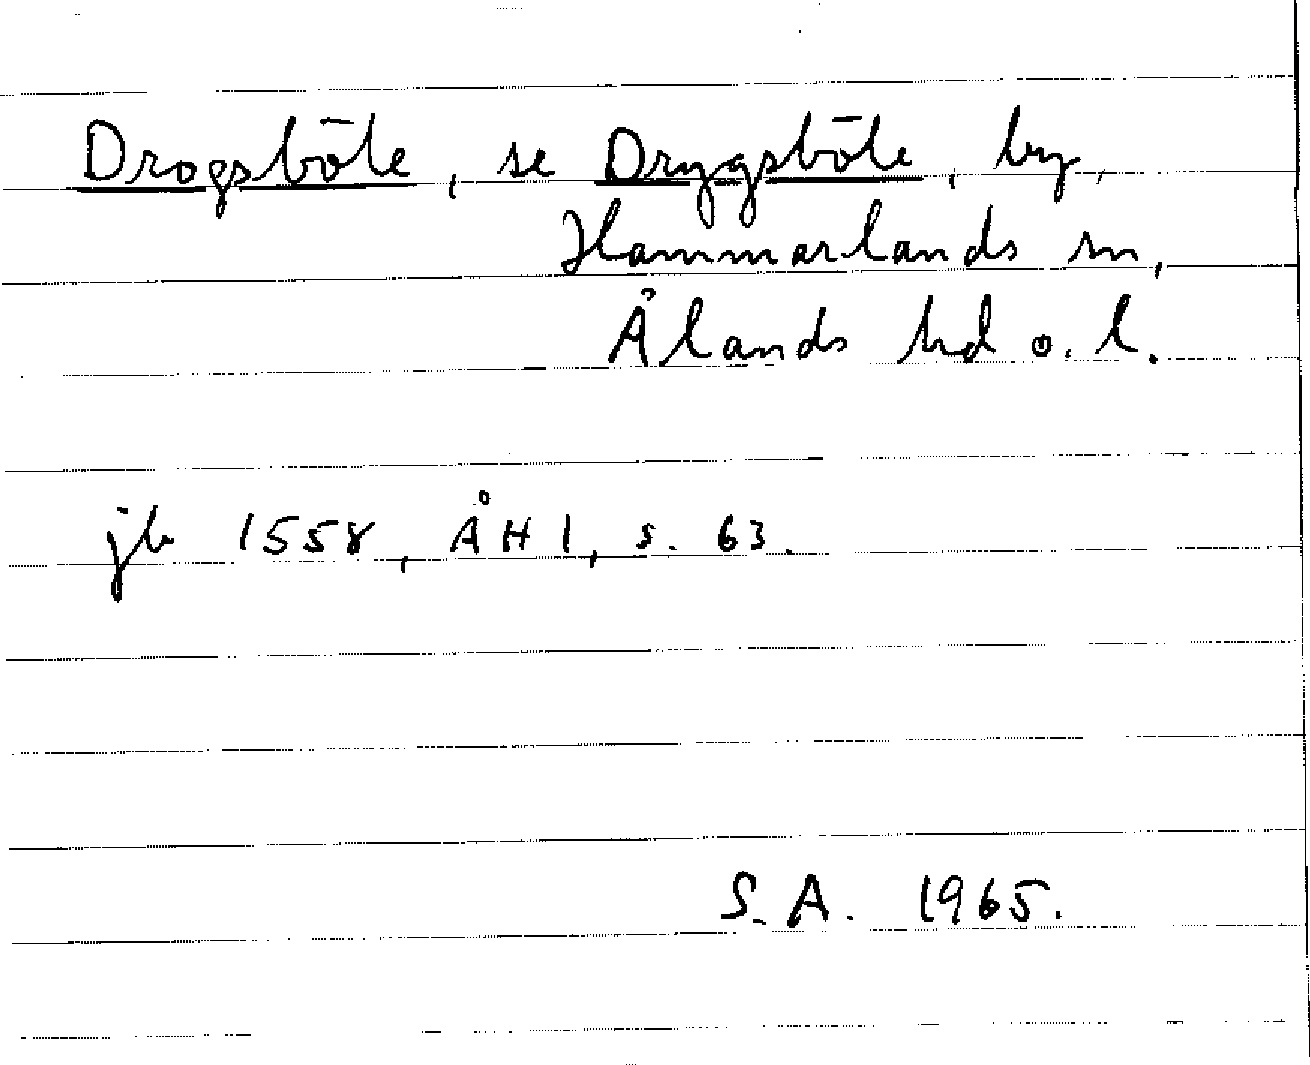 Drogsböle, se Drygsböle, by,
Hammarlands sn,
Ålands hd o. l.
jb 1558, ÅH 1, s. 63.
S. A. 1965.